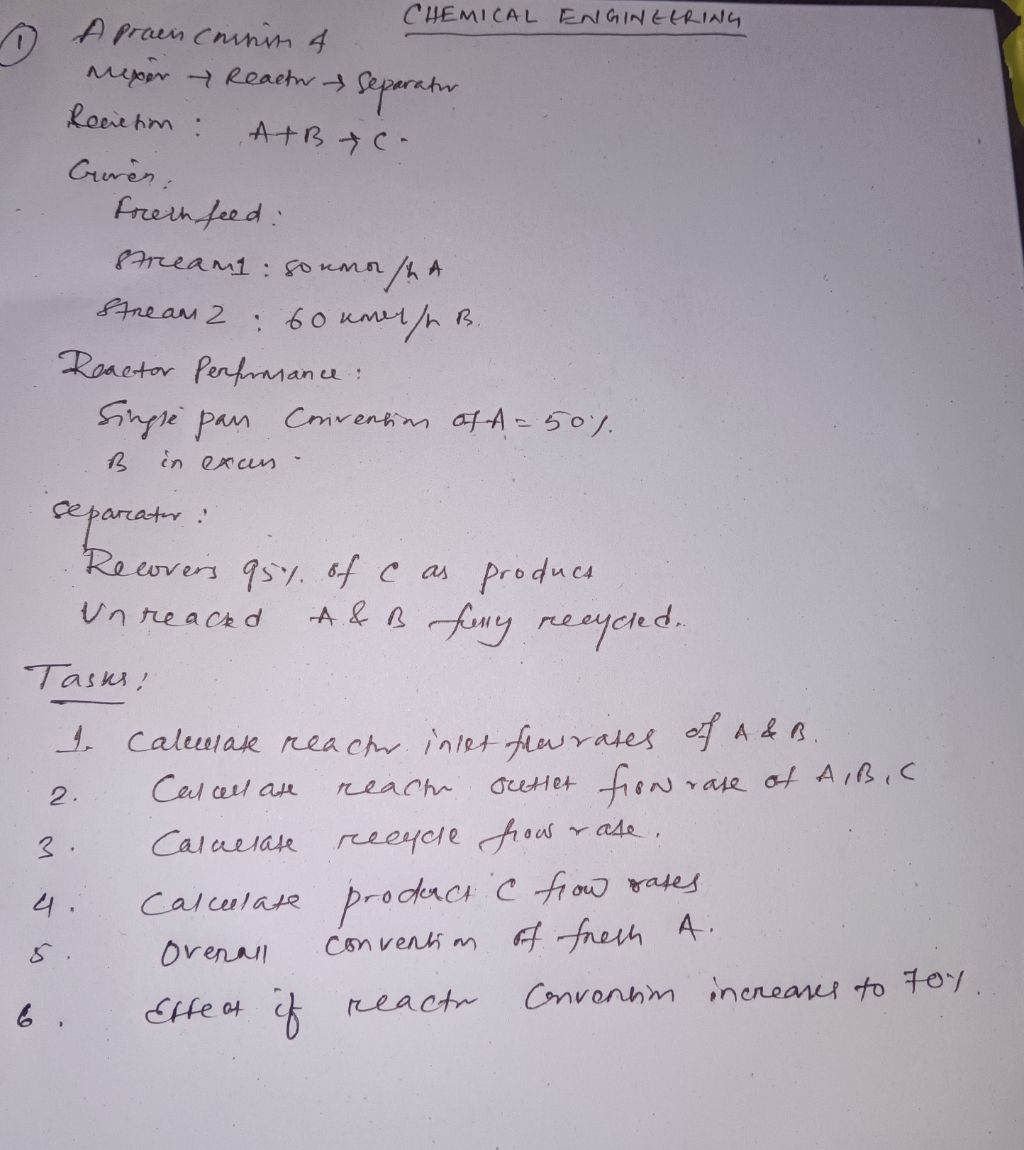 CHEMICAL ENGINEERING
① A process consists of
Mixer → Reactor → Separator
Reaction : A+B → C.
Given,
Fresh feed :
Stream 1 : 50 kmol/h A
Stream 2 : 60 kmol/h B.
Reactor Performance :
Single pass Conversion of A = 50%.
B in excess.
Separator :
Recovers 95% of C as product
Unreacted A & B fully recycled.
Tasks :
1. Calculate reactor inlet flow rates of A & B.
2. Calculate reactor outlet flow rate of A, B, C
3. Calculate recycle flow rate.
4. Calculate product C flow rates
5. Overall conversion of fresh A.
6. Effect if reactor Conversion increases to 70%.